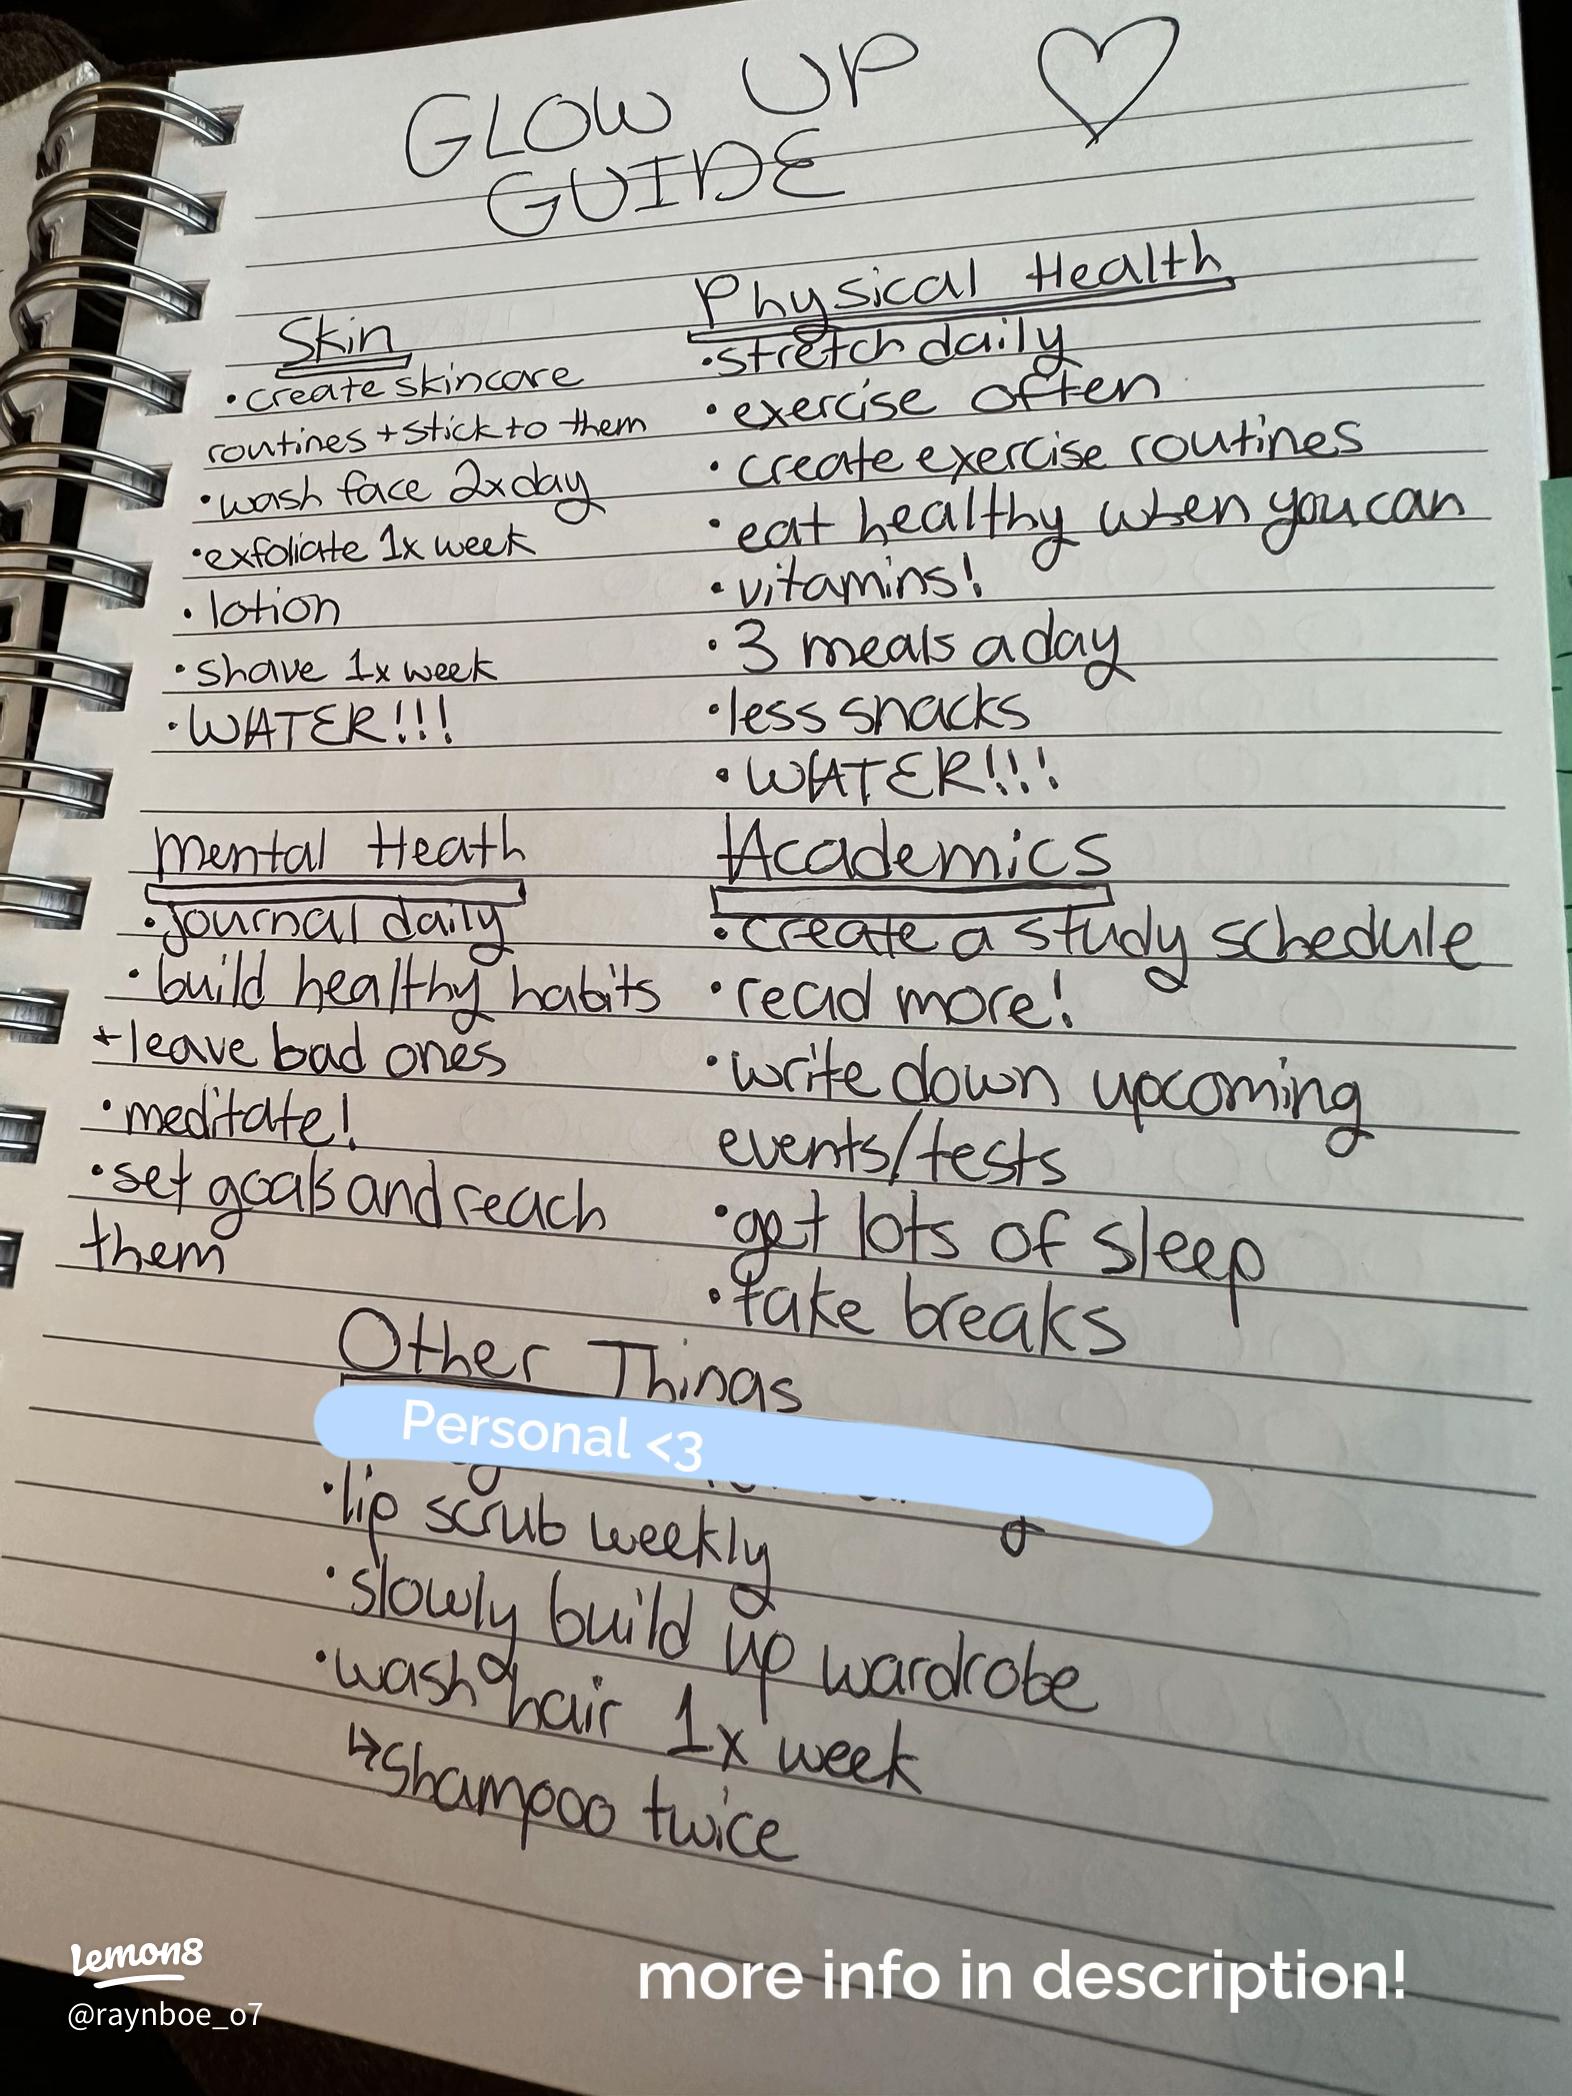 GLOW UP
GUIDE
Skin
• create skincare
routines + stick to them
• wash face 2x day
• exfoliate 1x week
• lotion
• shave 1x week
• WATER!!!
Physical Health
• stretch daily
• exercise often
• create exercise routines
• eat healthy when you can
• vitamins!
• 3 meals a day
• less snacks
• WATER!!!
Mental Heath
• journal daily
• build healthy habits
+ leave bad ones
• meditate!
• set goals and reach
them
Academics
• create a study schedule
• read more!
• write down upcoming
events/tests
• get lots of sleep
• take breaks
Other Things
Personal <3
• lip scrub weekly
• slowly build up wardrobe
• wash hair 1x week
↳ shampoo twice
Lemon8
@raynboe_o7
more info in description!